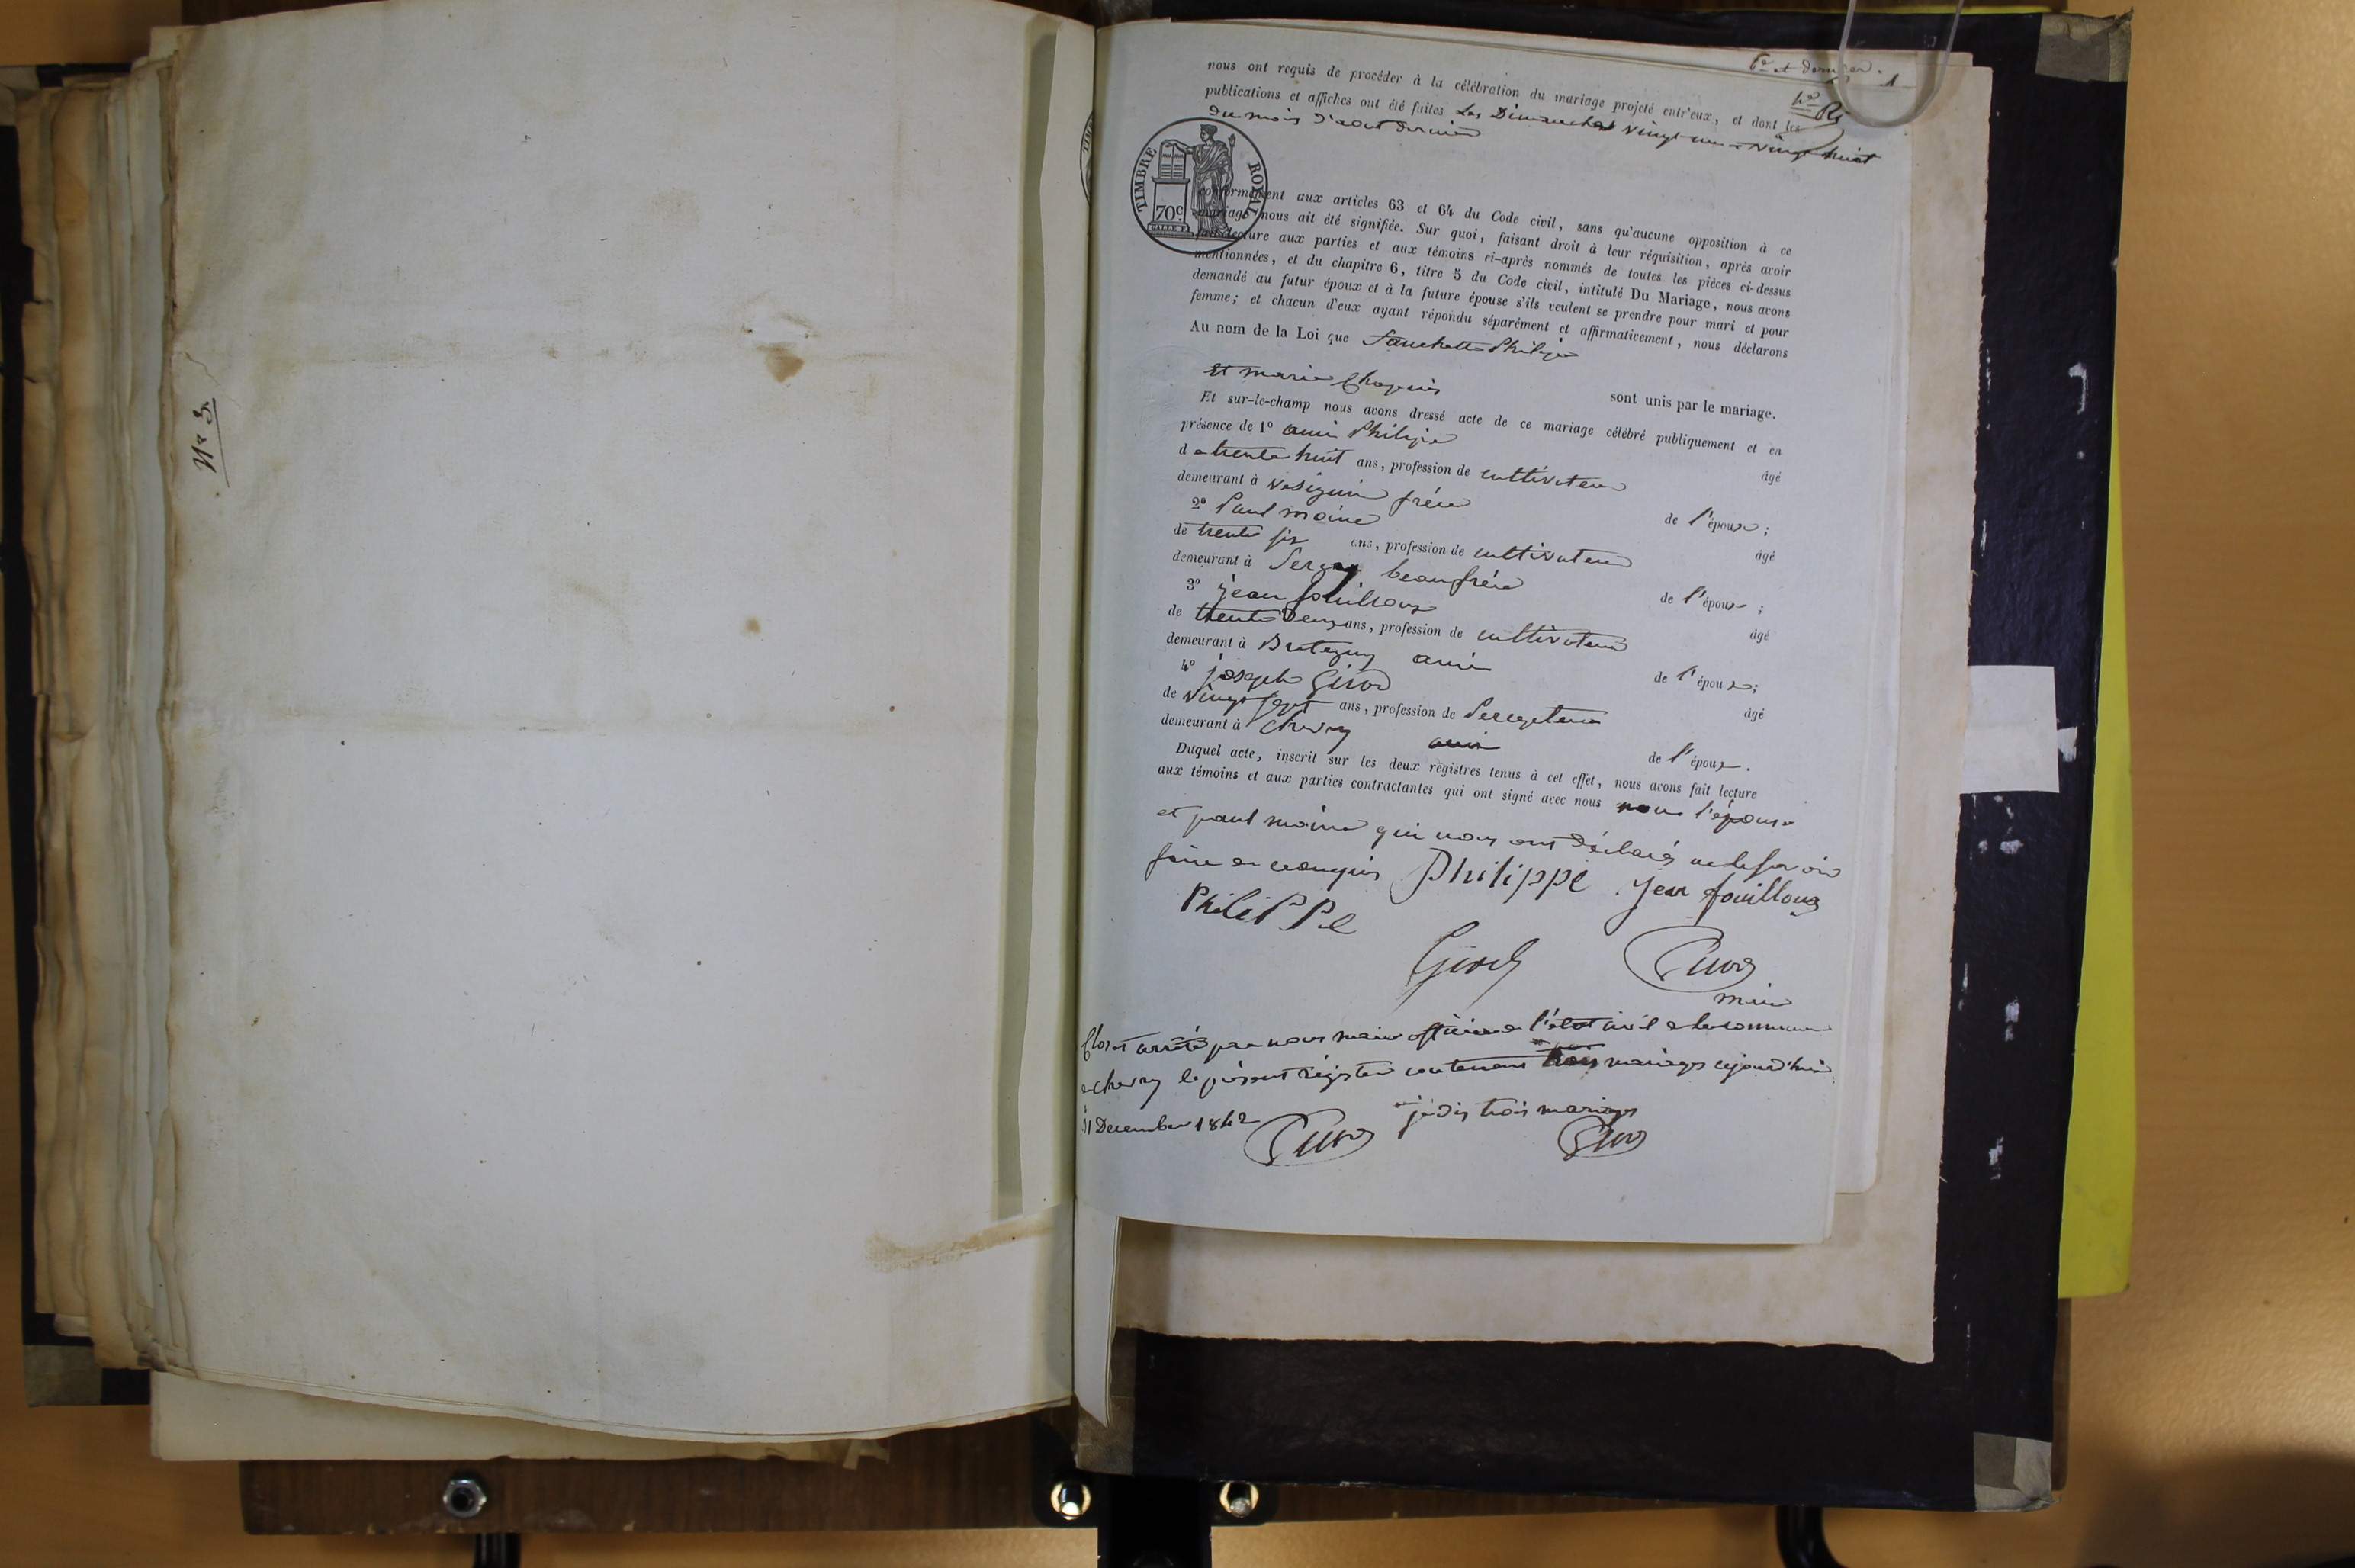 N° 3.
6e et dernier.
1
nous ont requis de procéder à la célébration du mariage projeté entr'eux, et dont les
publications et affiches ont été faites les Dimanches vingt un & vingt huit
du mois d'aout dernier
TIMBRE ROYAL
70c.
conformément aux articles 63 et 64 du Code civil, sans qu'aucune opposition à ce
mariage nous ait été signifiée. Sur quoi, faisant droit à leur réquisition, après avoir
fait lecture aux parties et aux témoins ci-après nommés de toutes les pièces ci-dessus
mentionnées, et du chapitre 6, titre 5 du Code civil, intitulé Du Mariage, nous avons
demandé au futur époux et à la future épouse s'ils veulent se prendre pour mari et pour
femme; et chacun d'eux ayant répondu séparément et affirmativement, nous déclarons
Au nom de la Loi que Philippe
et marie Chapuis sont unis par le mariage.
Et sur-le-champ nous avons dressé acte de ce mariage célébré publiquement et en
présence de 1° ami Philippe âgé
de trente huit ans, profession de cultivateur
demeurant à Vesegnin frère de l'époux;
2° Paul moine âgé
de trente six ans, profession de cultivateur
demeurant à Sergy beaufrére de l'époux;
3° jean fouilloux âgé
de trente deux ans, profession de cultivateur
demeurant à Bretegny ami de l'époux;
4° joseph Girod âgé
de vingt sept ans, profession de Percepteur
demeurant à Chevry ami de l'époux.
Duquel acte, inscrit sur les deux registres tenus à cet effet, nous avons fait lecture
aux témoins et aux parties contractantes qui ont signé avec nous non l'épouse
et paul moine qui nous ont déclarés ne le savoir
faire de ce enquis Philippe Jean fouilloux
PhiliPPe
Girod
maire
Clos et arrété par nous maire officier de l'état civil de la commune
de chevry le présent régistre contenant trois mariages cejourd'hui
31 Decembre 1842 je dis trois mariages